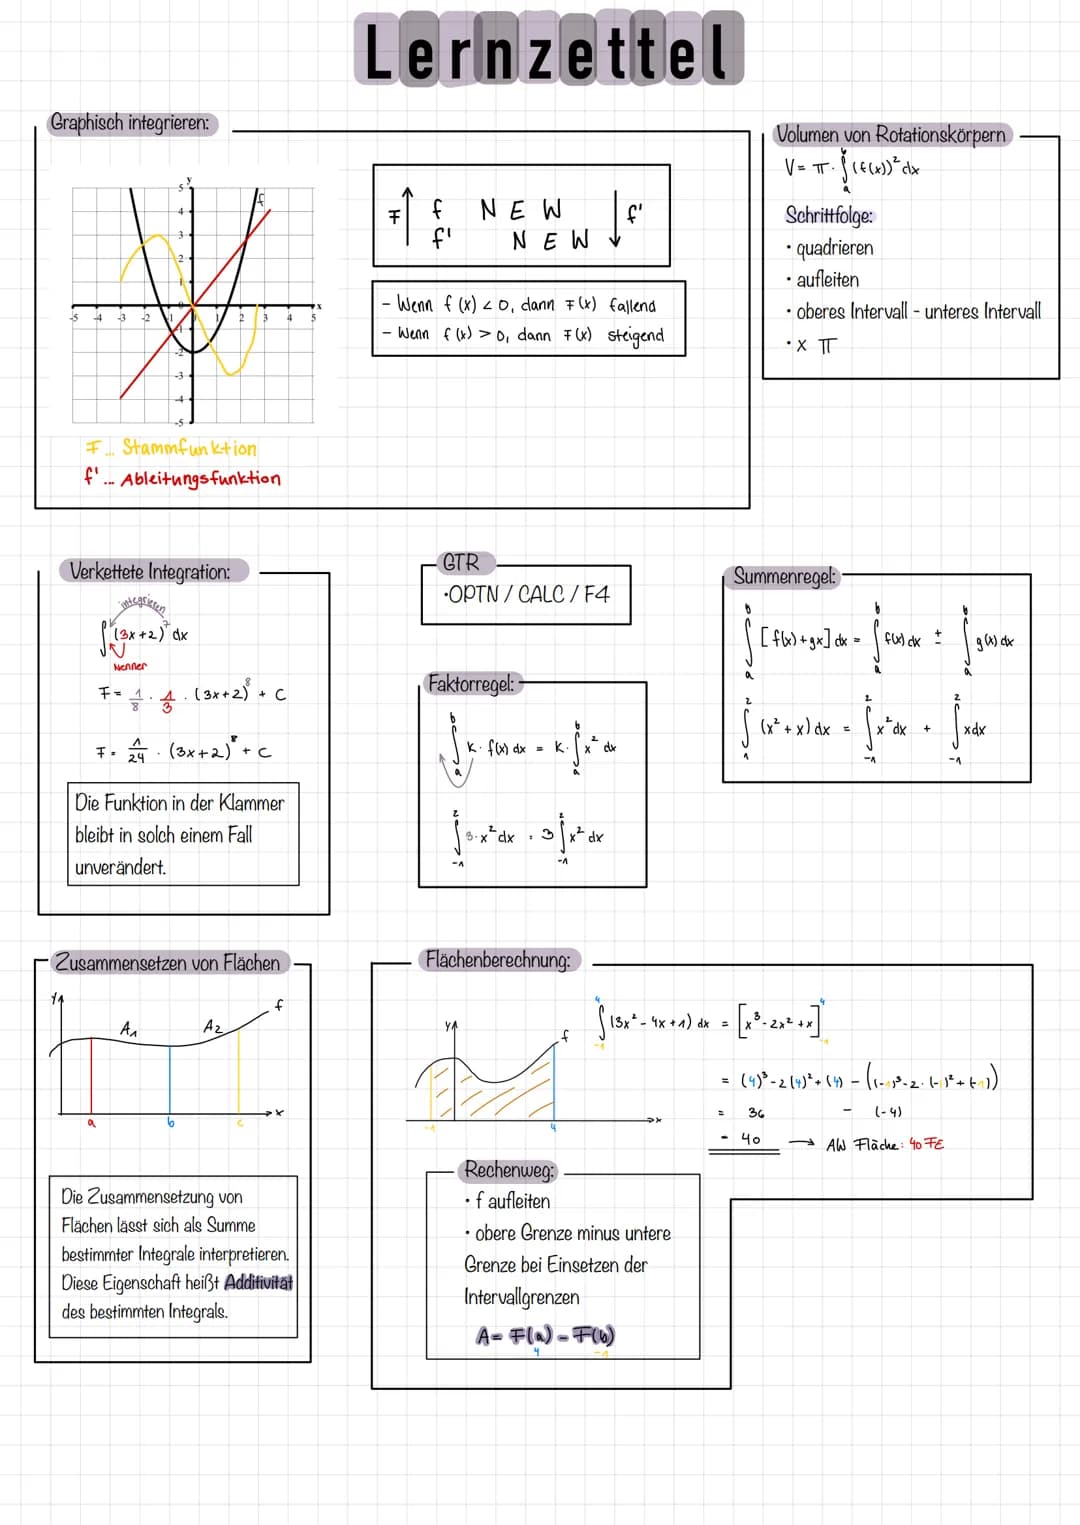 Lernzettel
Graphisch integrieren:
y
f
5
4
3
2
1
0
-5 -4 -3 -2 -1 1 2 3 4 5 x
-1
-2
-3
-4
-5
F... Stammfunktion
f'... Ableitungsfunktion
F ↑ f N E W ↓ f'
f' N E W
- Wenn f(x) < 0, dann F(x) fallend
- Wenn f(x) > 0, dann F(x) steigend
Volumen von Rotationskörpern
V = π · ∫ₐᵇ (f(x))² dx
Schrittfolge:
• quadrieren
• aufleiten
• oberes Intervall - unteres Intervall
• x π
Verkettete Integration:
integrieren
∫(3x+2)⁷ dx
Nenner
F = 1/8 · 1/3 · (3x+2)⁸ + C
F = 1/24 · (3x+2)⁸ + C
Die Funktion in der Klammer
bleibt in solch einem Fall
unverändert.
GTR
•OPTN / CALC / F4
Faktorregel:
∫ₐᵇ k · f(x) dx = k · ∫ₐᵇ x² dx
∫₋₁² 3·x² dx = 3 ∫₋₁² x² dx
Summenregel:
∫ₐᵇ [f(x) + gx] dx = ∫ₐᵇ f(x) dx ± ∫ₐᵇ g(x) dx
∫₁² (x² + x) dx = ∫₋₁² x² dx + ∫₋₁² x dx
Zusammensetzen von Flächen
y
A₁
A₂
f
x
a
b
c
Die Zusammensetzung von
Flächen lässt sich als Summe
bestimmter Integrale interpretieren.
Diese Eigenschaft heißt Additivität
des bestimmten Integrals.
Flächenberechnung:
y
f
x
-1
4
∫₋₁⁴ (3x² - 4x + 1) dx = [x³ - 2x² + x]₋₁⁴
= (4)³ - 2(4)² + (4) - ((-1)³ - 2·(-1)² + (-1))
= 36 - (-4)
= 40 → AW Fläche: 40 FE
Rechenweg:
• f aufleiten
• obere Grenze minus untere
Grenze bei Einsetzen der
Intervallgrenzen
A = F(a) - F(b)
4 -1